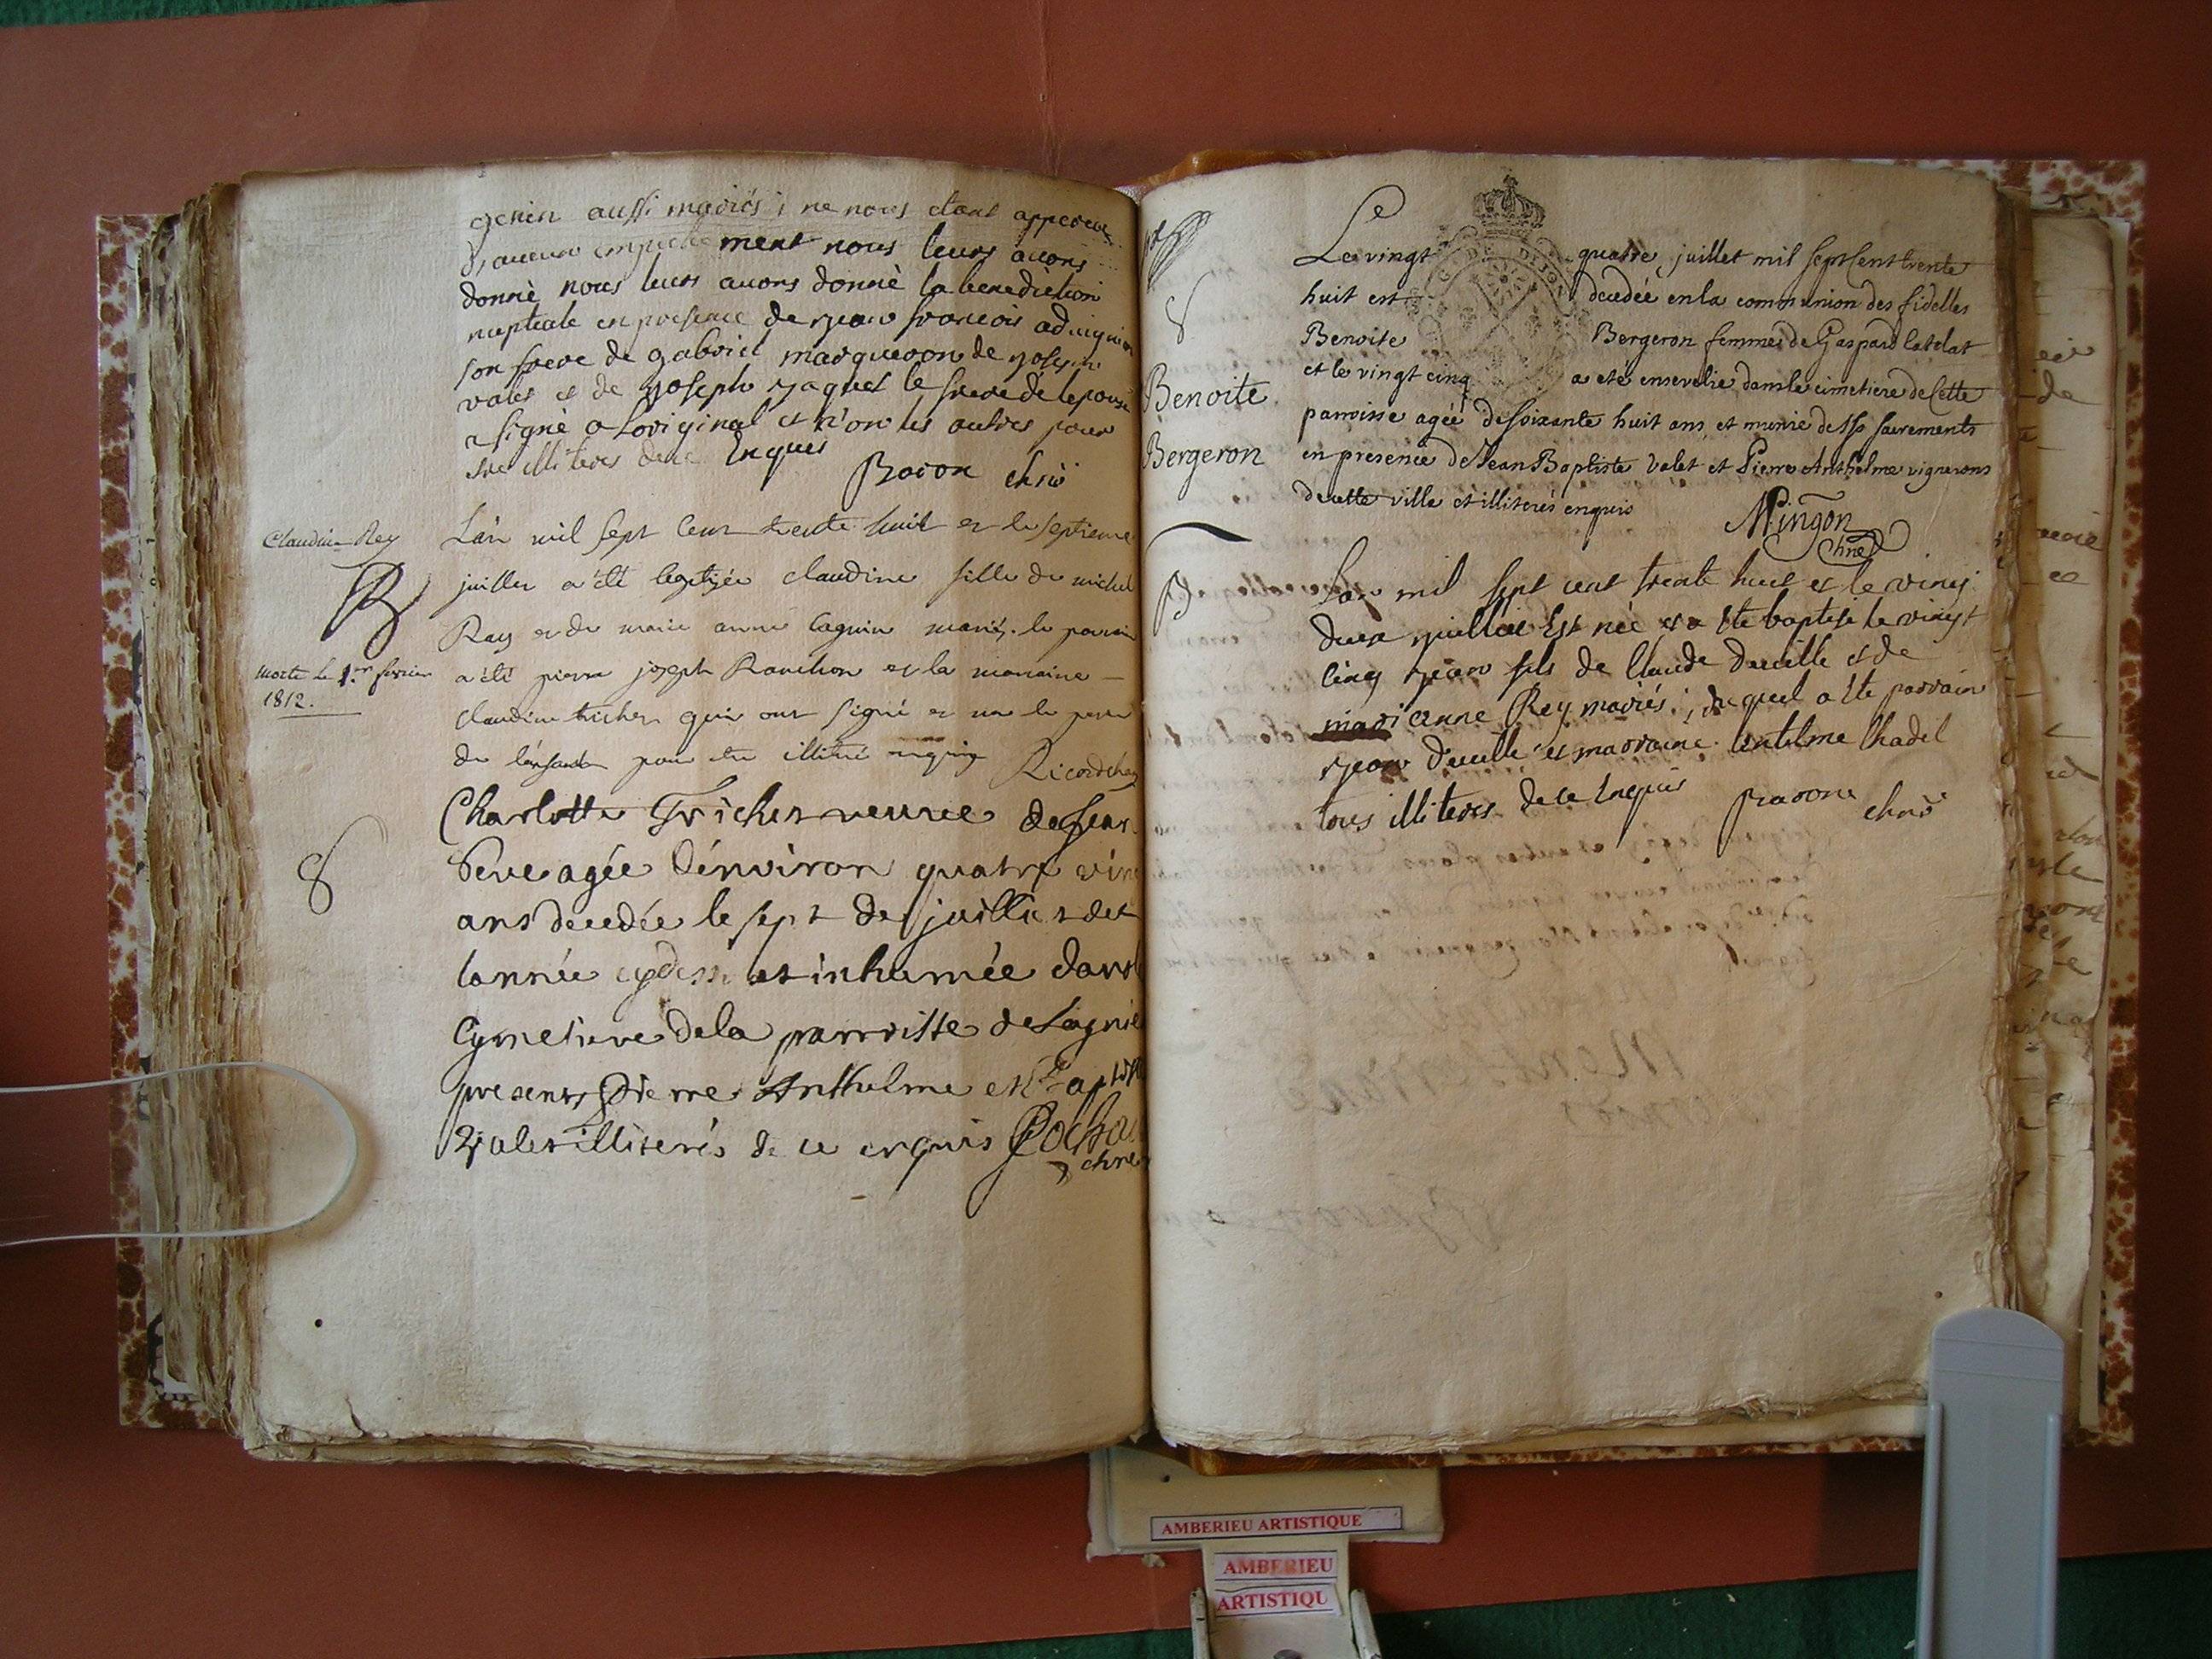 genin aussi mariés ; ne nous etant apperceu
d'aucun empeche ment nous leurs avons
donnè nous leurs avons donnè la benediction
nuptiale en presence de jean francois
son frere de gabriel margueron de joseph
valet et de joseph jaquet le frere de lepouse
a signè a loriginal et non les autres pour
illiteres de ce Enquis
Baron chne
Claudine Rey
L'an mil sept cent trente huit et le septieme
juillet a été baptizée claudine fille de michel
Rey et de marie anne mariés. le parain
morte le 1.er fevrier
1812.
a été pierre joseph et la maraine
claudine trichet qui ont signé et non le pere
de l'enfant pour etre illitéré enquis Ricard chne
Charlotte Trichet veuve de
agée denviron quatre vin
ans decedée le sept de juillet de
lannée cydess et inhumée dans
Cymetiere de la parroisse de Lagnie
presents Pierre Anthelme et
Valet illiterés de ce enquis
chne
Le
Le vingt quatre juillet mil sept cent trente
huit est decedée en la communion des fidelles
Benoite Bergeron femme de Gaspard
et le vingt cinq a eté ensevelie dans le cimetiere de cette
Benoite
Bergeron
parroisse agée de soixante huit ans et munie de sacrements
en presence de Jean Baptiste Valet et Pierre Anthelme vignerons
de cette ville et illiterés enquis
Mingon
chne
B
Lan mil sept cent trente huit et le vingt
deux juillet Est née et a ete baptisé le vingt
cinq jean fils de Claude et de
marianne Rey mariés ; duquel a ete parrain
jean et marraine
tous illiteres de ce Enquis Baron chne
AMBERIEU ARTISTIQUE
AMBERIEU
ARTISTIQU